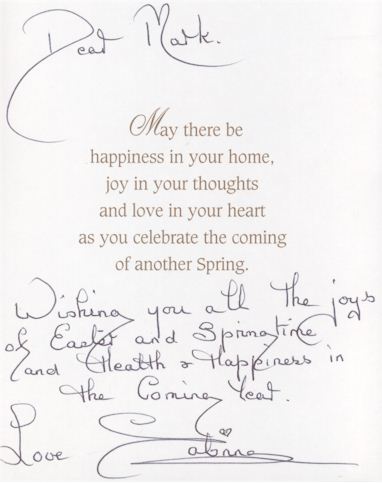 Dear Mark.
May there be
happiness in your home,
joy in your thoughts
and love in your heart
as you celebrate the coming
of another Spring.
Wishing you all the joys
of Easter and Springtime
and Health & Happiness in
the Coming Year.
Love Sabrina